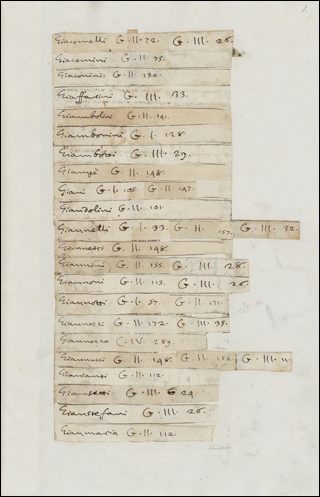 Giacomelli G·II·72. G·III·26.
Giacomini G·II·75.
Giacomini G·II·130.
Giaffarini G·III·33.
Giambolini G·II·141.
Giambonini G·I·128.
Giambotti G·III·29.
G·II·148.
Giani G·I·105. G·II·147.
Giandolini G·II·101.
Giannelli G·I·33. G·II·157. G·III·32.
Giannetti G·II·148.
Giannini G·II·155. G·III·28.
Giannoni G·II·113. G·III·26.
Giannotti G·I·57. G·II·171.
Giannozzi G·II·172. G·III·35.
Giannozzo G·IV·289.
Giannucci G·II·148. G·II·152. G·III·11.
G·II·112.
G·III·24.
Gianstefani G·III·26.
Gianmaria G·II·112.